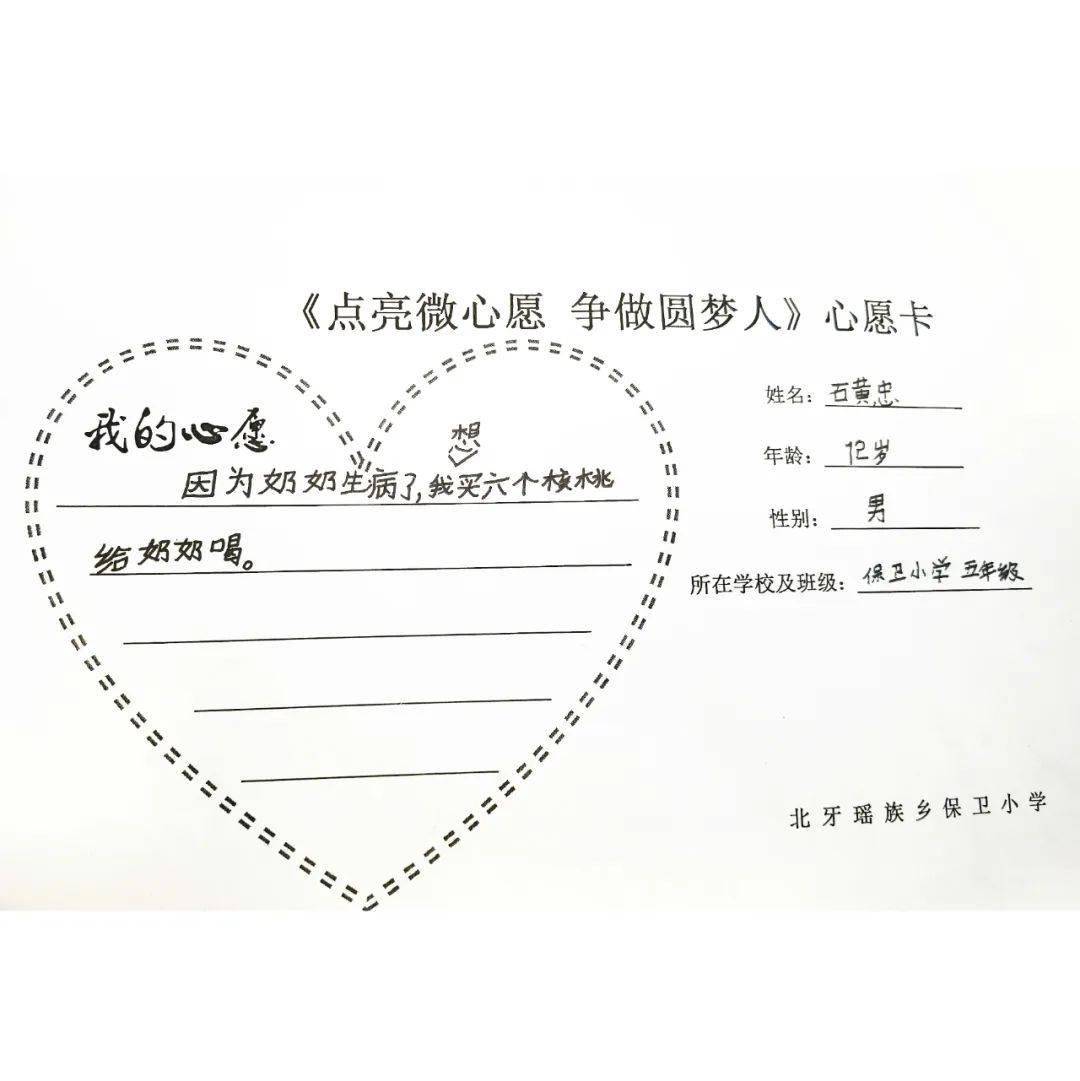 《点亮微心愿 争做圆梦人》心愿卡
我的心愿
想
因为奶奶生病了,我买六个核桃
给奶奶喝。
姓名：石黄忠
年龄：12岁
性别：男
所在学校及班级：保卫小学 五年级
北牙瑶族乡保卫小学